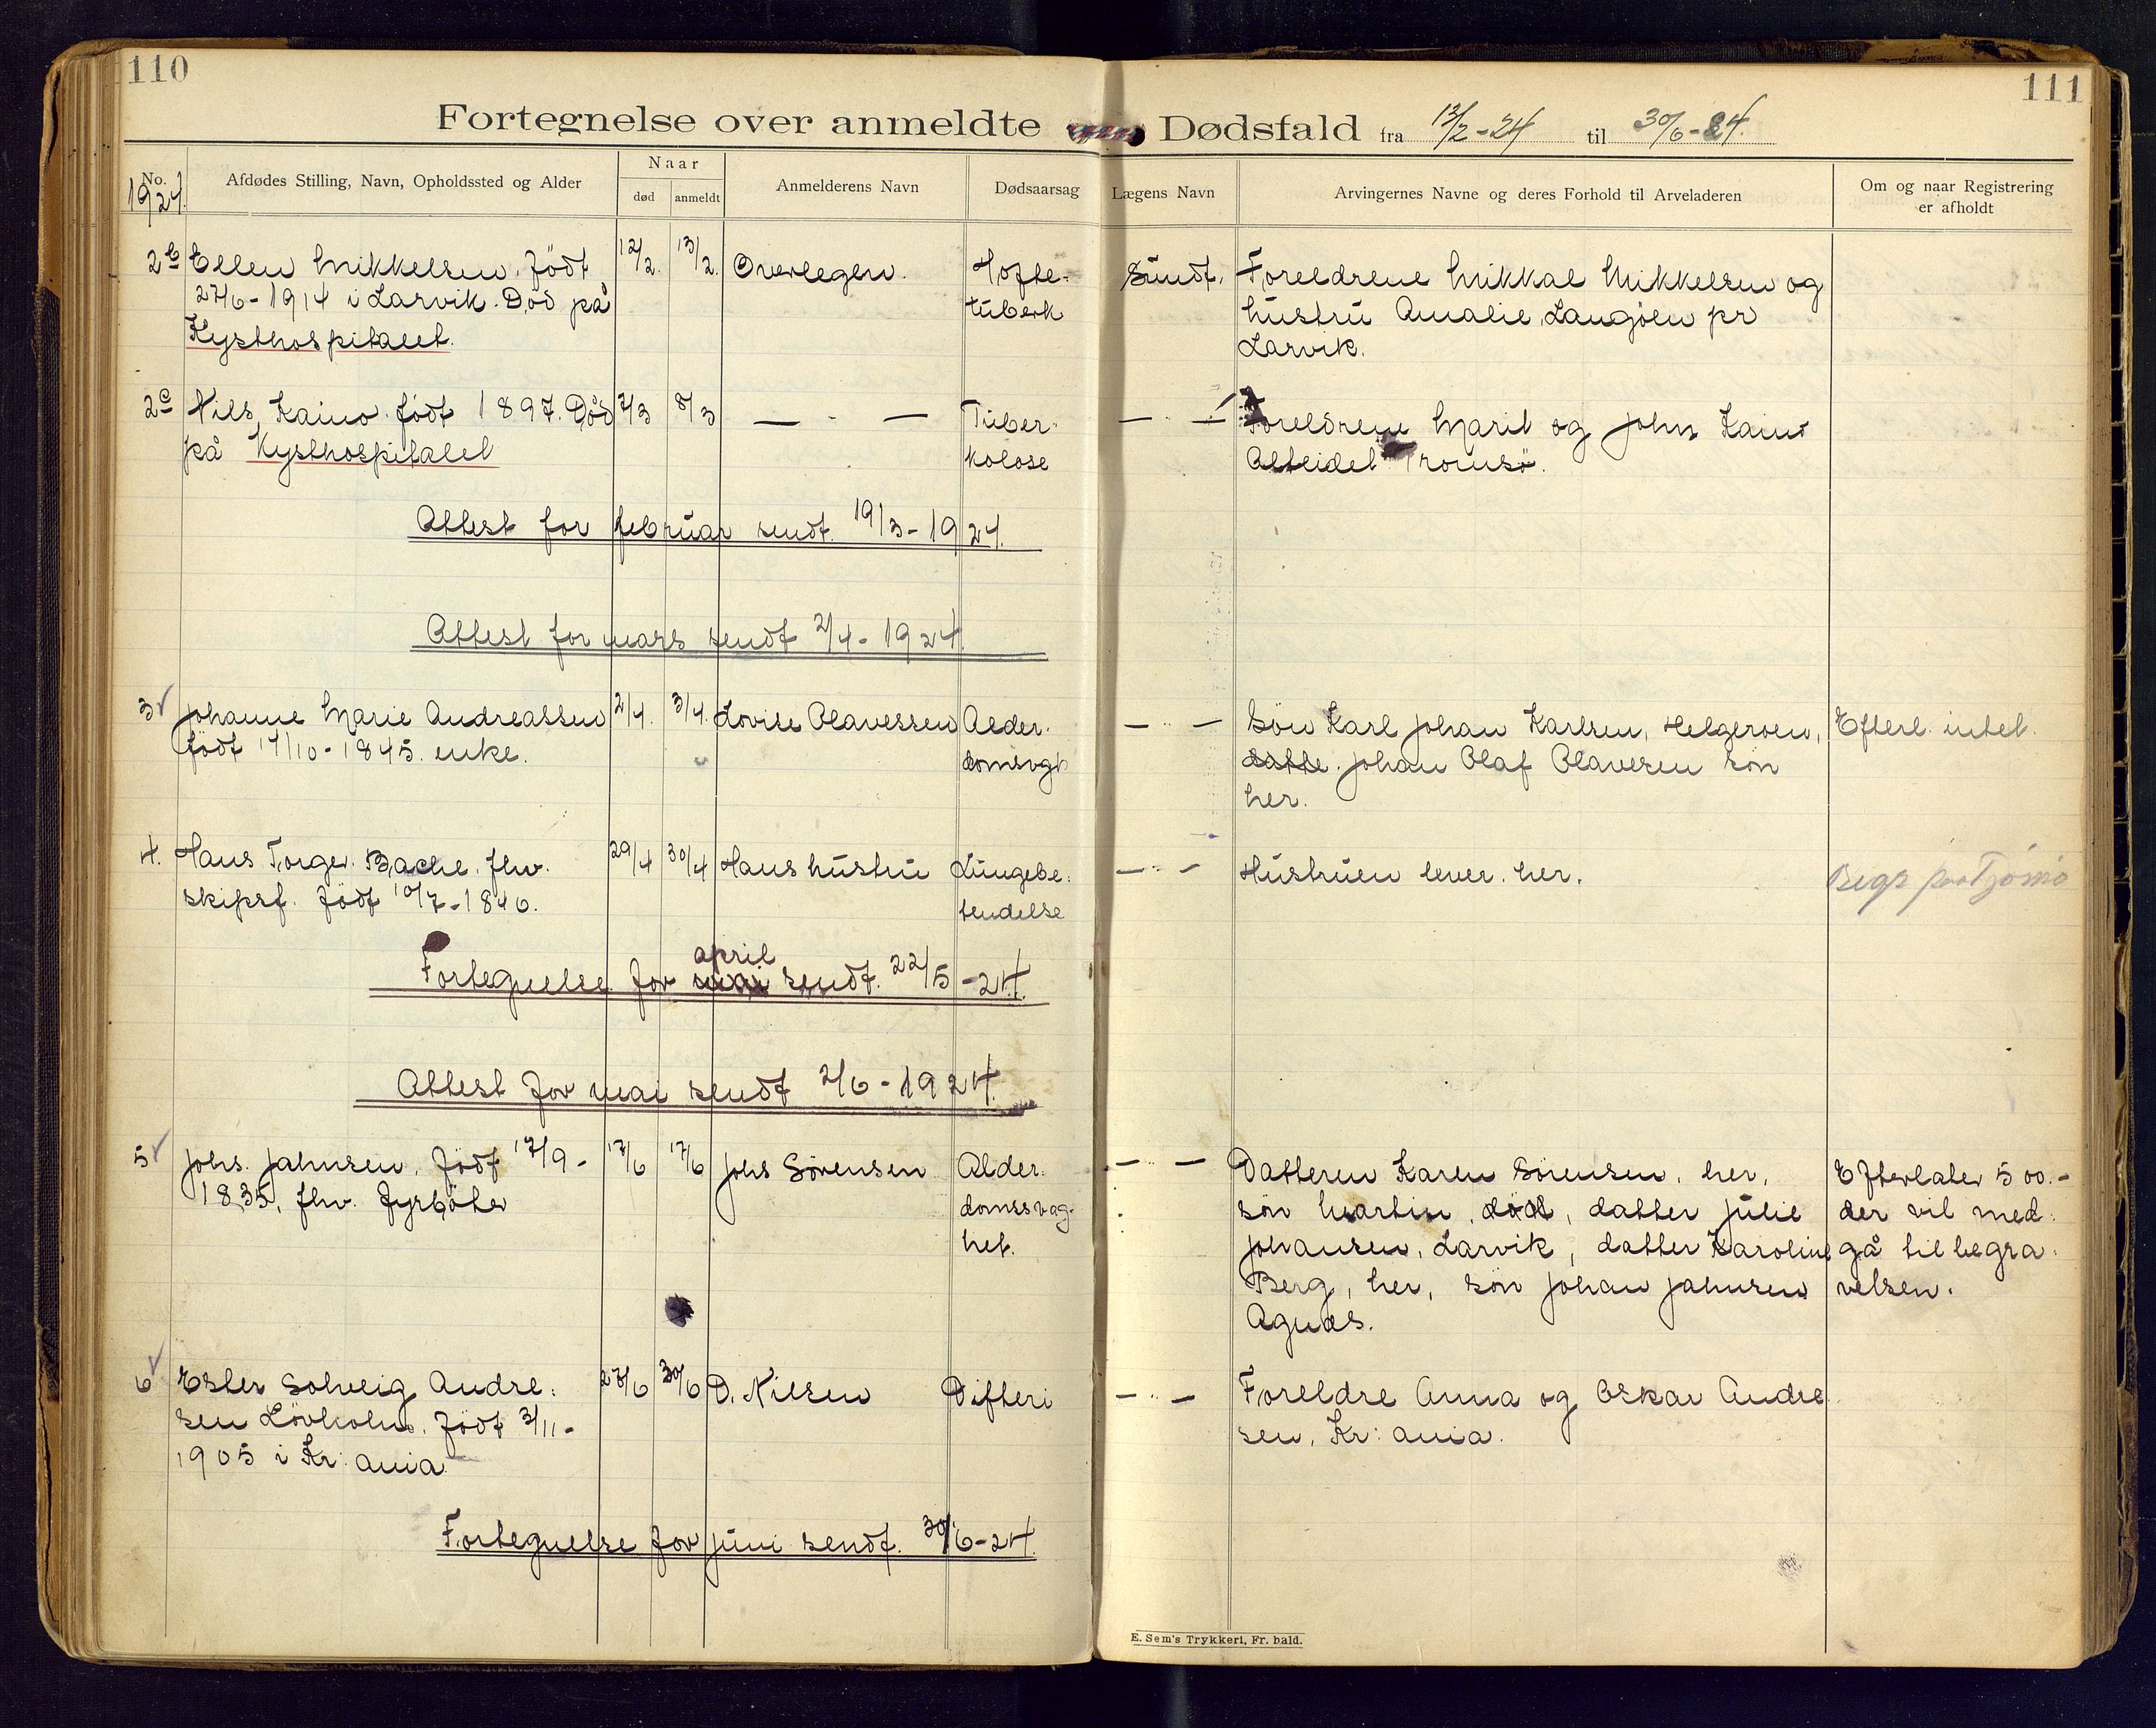 110
111
Fortegnelse over anmeldte Dødsfald fra 13/2-24 til 30/6-24.
No. 1924.
Afdødes Stilling, Navn, Opholdssted og Alder
Naar
død
anmeldt
Anmelderens Navn
Dødsaarsag
Lægens Navn
Arvingernes Navne og deres Forhold til Arveladeren
Om og naar Registrering
er afholdt
2b Ellen Mikkelsen. født 12/2. 13/2. Overlegen. Hofte- Sundt. Foreldrene Mikkal Mikkelsen og
27/6-1914 i Larvik. Død på tuberk hustru Amalie, Langøen pr
Kysthospitalet. Larvik.
2c Nils, Kaino. født 1897. Død 7/3 8/3 — - — Tuber- — " — Foreldrene Marit og John Kaino
på Kysthospitalet kolose Alteidet Tromsø.
Attest for februar sendt. 19/3-1924.
Attest for mars sendt 2/4-1924.
3 Johanne Marie Andreassen 2/4. 3/4. Lovise Olavessen Alder- — " — Søn Karl Johan Karlsen, Helgeroen, Efterl. intet.
født 17/10-1845. enke. domsvgh datte. Johan Olaf Olavesen søn
her.
4. Hans Torger Bache. fhv. 29/4 30/4 Hans hustru Lungebe- — " — Hustruen lever. her. Begr paa Tjømø
skipsf. født 10/7-1840. tendelse
april
Fortegnelse for mai sendt. 22/5-24.
Attest for mai sendt 2/6-1924.
5 Johs. Jahnsen. født 17/9- 17/6 17/6 Johs Sørensen Alder- — " — Datteren Karen Sørensen, her, Efterlater 500.-
1835, fhv. fyrbøter domssvag- søn Martin, død, datter Julie der vil med-
het. Johansen, Larvik, datter Karoline gå til begra-
Berg, her, søn Johan Jahnsen velsen.
Agnes.
6 Ester Solveig Andre- 27/6 30/6 D. Nilsen Difteri — " — Foreldre Anna og Oskar Andre
sen Løvholm. født 3/11- sen, Kr:ania.
1905 i Kr:ania
Fortegnelse for juni sendt. 30/6-24.
E. Sem's Trykkeri, Fr. hald.